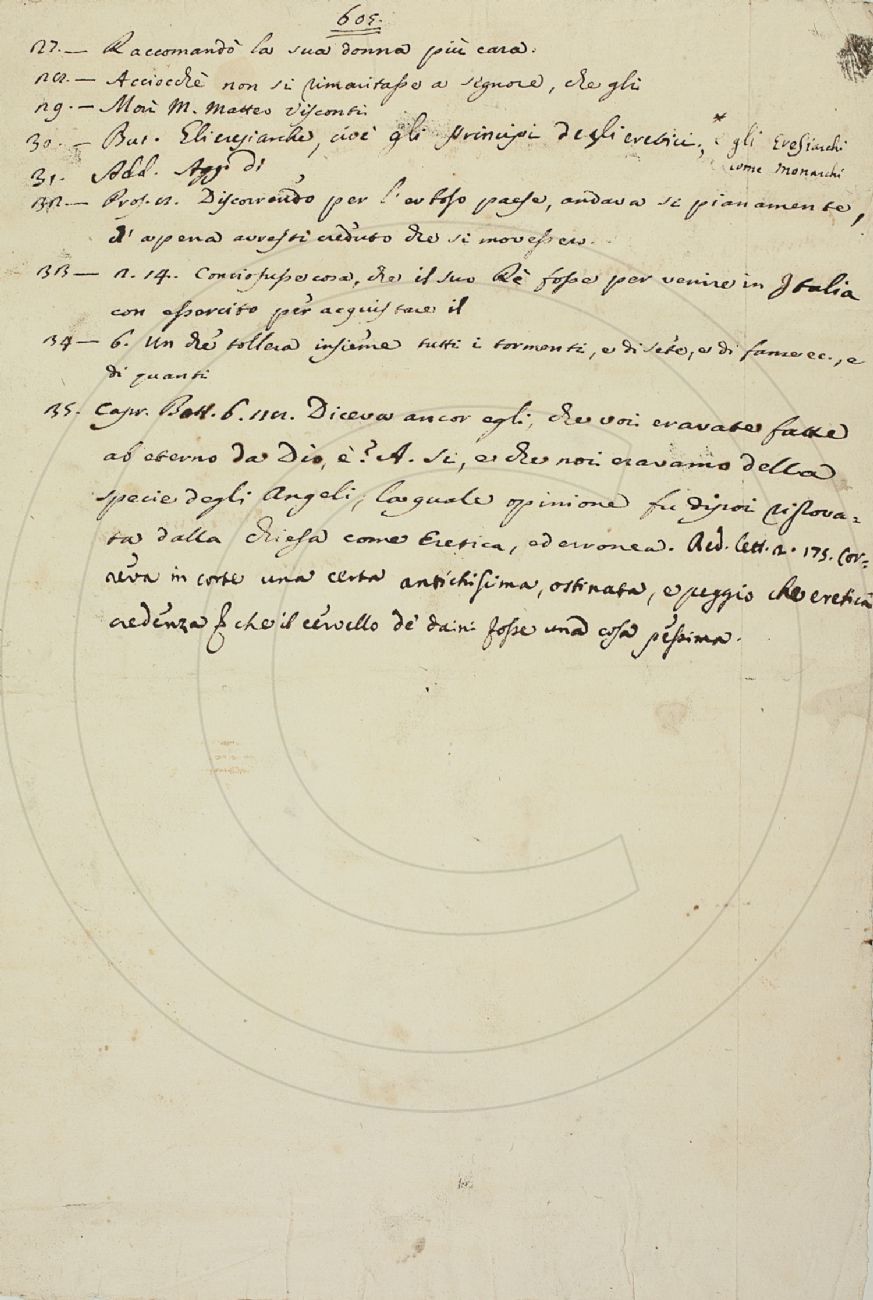 605.
27. — Raccomandò la sua donna più cara.
28. — Acciocchè non si rimaritasse a signore, che gli
29. — Morì M. Matteo Visconti
30. — But. Eli eresiarche, cioè gli principi degli eretici; * gli Eresiarchi
come Monarchi
31. Add. Agg. di
32 — Pros. 2. Discorrendo per l'ertoso paese, andava sì pianamente,
ch' apena avresti creduto che si movessero.
33 — 2. 14. Conciofussecosa, che il suo Rè fosse per venire in Italia
con essercito per acquistare il
34 — 6. Un che tollera insieme tutti i tormenti, e di sete, e di fame ec., e
di quanti
35. Capr. Bott. 6. 112. Diceva ancor egli, che voi eravate fatte
ab eterno da Dio, è? A. Si, e che noi eravamo della
specie degli Angeli, la quale opinione fu dipoi ripova-
ta dalla Chiesa come Eretica, ed erronea. Red. lett. 2. 175. Cor-
reva in corte una certa antichissima, ostinata, e peggio che eretica
credenza che il cervello de' daini fosse una cosa pessima.